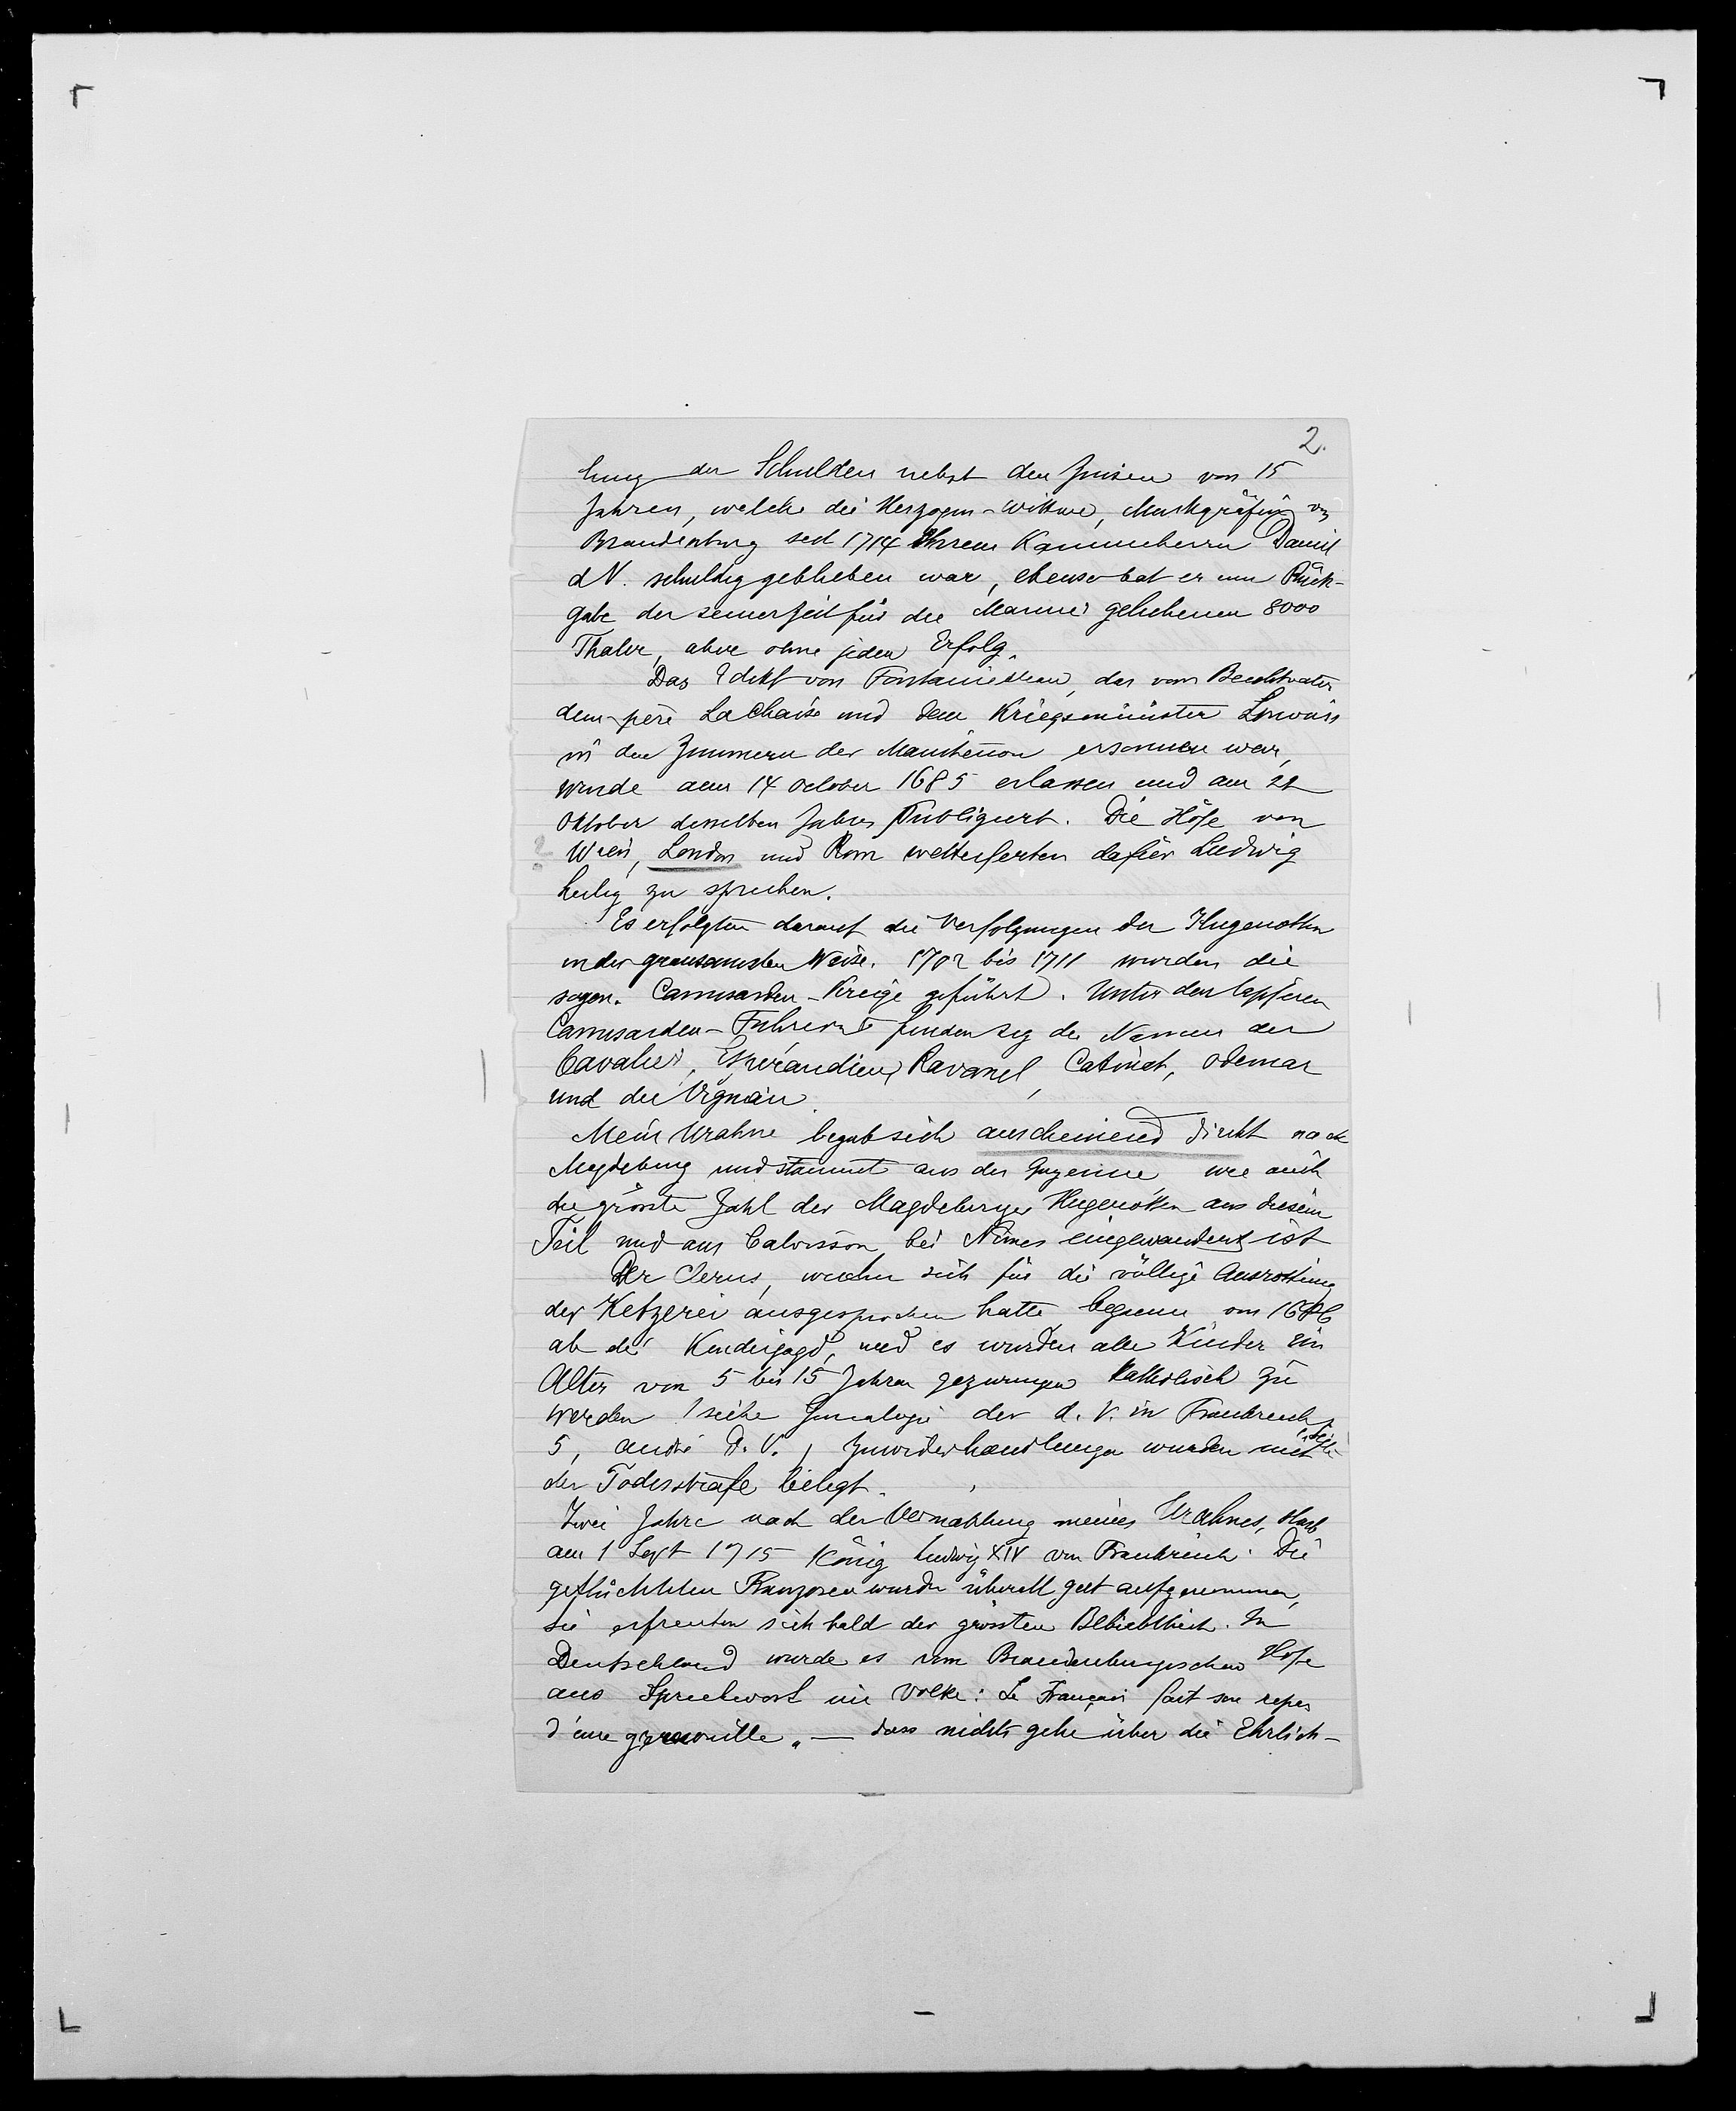 2.
lung der Schulden nebst den Zinsen von 15
Jahren, welche die Herzogin-Wittwe, Markgräfin von
Brandenburg seit 1714 Ihrem Kammerherrn Daniel
d V. schuldig geblieben war, ebenso bat er um Rück-
gabe der seinerzeit für die Marine geliehenen 8000
Thaler, aber ohne jeden Erfolg.
Das Edikt von Fontainebleau, das vom Beichtvater
dem père La Chaise und dem Kriegsminister Louvois
in den Zimmern der Maintenon ersonnen war,
wurde am 14 October 1685 erlassen und am 22
Oktober desselben Jahres Publiziert. Die Höfe von
? Wien, London und Rom wetteiferten dafür Ludwig
heilig zu sprechen.
Es erfolgten darauf die Verfolgungen der Hugenotten
in der grausamsten Weise. 1702 bis 1711 wurden die
sogen. Camisarden-Kriege geführt. Unter den tapferen
Camisarden-Führern finden die Namen der
Cavalier, Espérandieu, Ravanel, Catinat, Odemar
und die Vignau.
Mein Urahne begab sich anscheinend direkt nach
Magdeburg und stammt aus der Guyenne wie auch
die grösste Zahl der Magdeburger Hugenotten aus diesem
Teil und aus Calvisson bei Nimes eingewandert ist
Der Clerus, welcher sich für die völlige Ausrottung
der Ketzerei ausgesprochen hatte begann von 1686
ab die Kinderjagd, und es wurden alle Kinder im
Alter von 5 bis 15 Jahren gezwungen Katholisch zu
werden (siehe Genealogie der d. V. in Frankreich
5, André d. V.) Zuwiderhandlungen wurden mit
der Todesstrafe belegt.
Zwei Jahre nach der Vermählung meines Urahnes, starb
am 1 Sept 1715 König Ludwig XIV von Frankreich. Die
geflüchteten Franzosen wurden überall gut aufgenommen,
sie erfreuten sich bald der grössten Beliebtheit. In
Deutschland wurde es vom Brandenburgischen Hofe
aus Sprichwort im Volke: Le Français fait son repas
d'une grenouille „— dass nichts gehe über die Ehrlich-